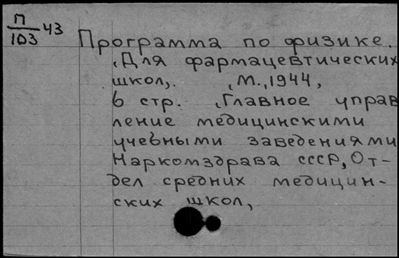 П
103
43
Программа по физике.
(Для фармацевтических
школ). (М., 1944,
6 стр. (Главное управ
ление медицинскими
учебными заведениями
Наркомздрава СССР, От-
дел средних медицин-
ских школ,